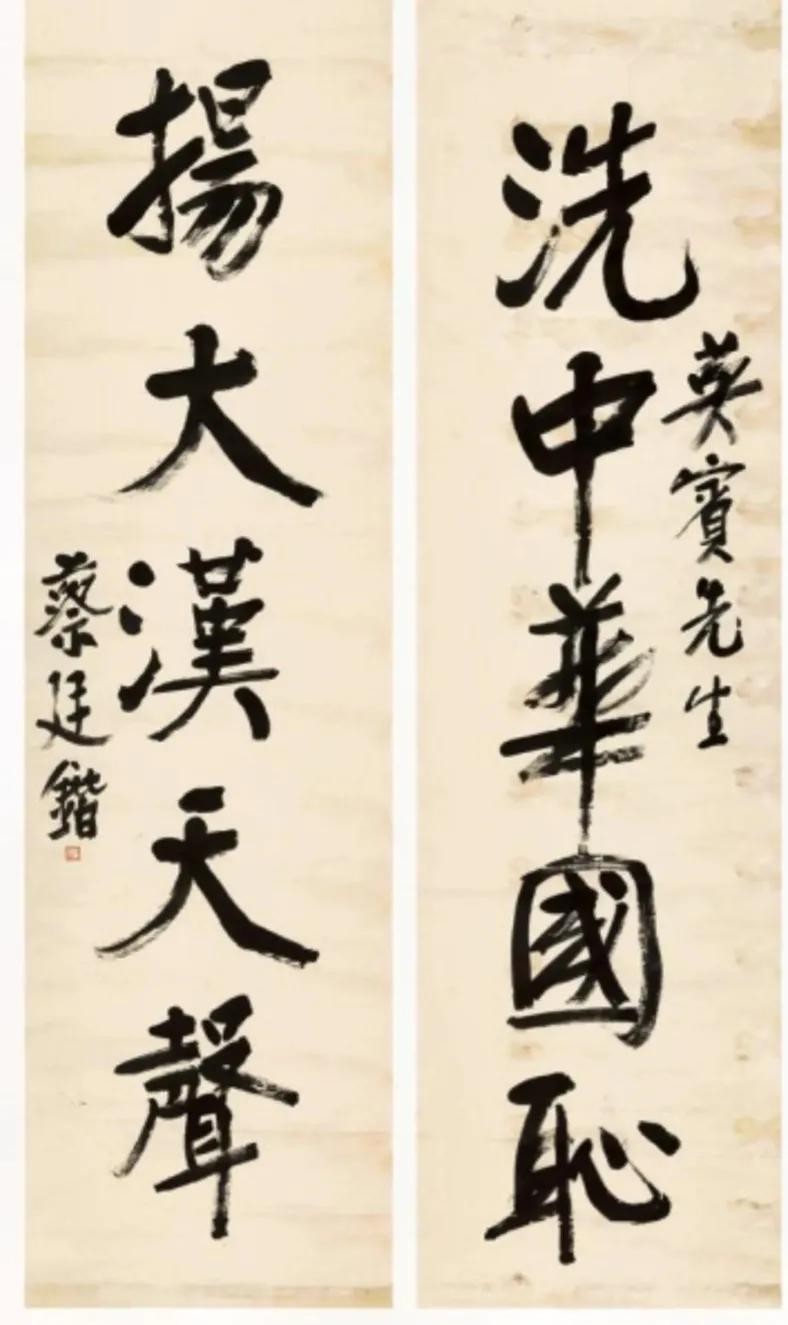 英賓先生
洗中華國恥
揚大漢天聲
蔡廷鍇